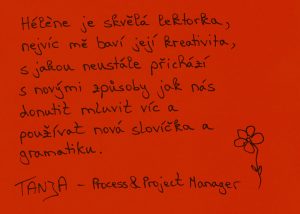 Hélène je skvělá lektorka,
nejvíc mě baví její kreativita,
s jakou neustále přichází
s novými způsoby jak nás
donutit mluvit víc a
používat nová slovíčka a
gramatiku.
TANJA - Process & Project Manager